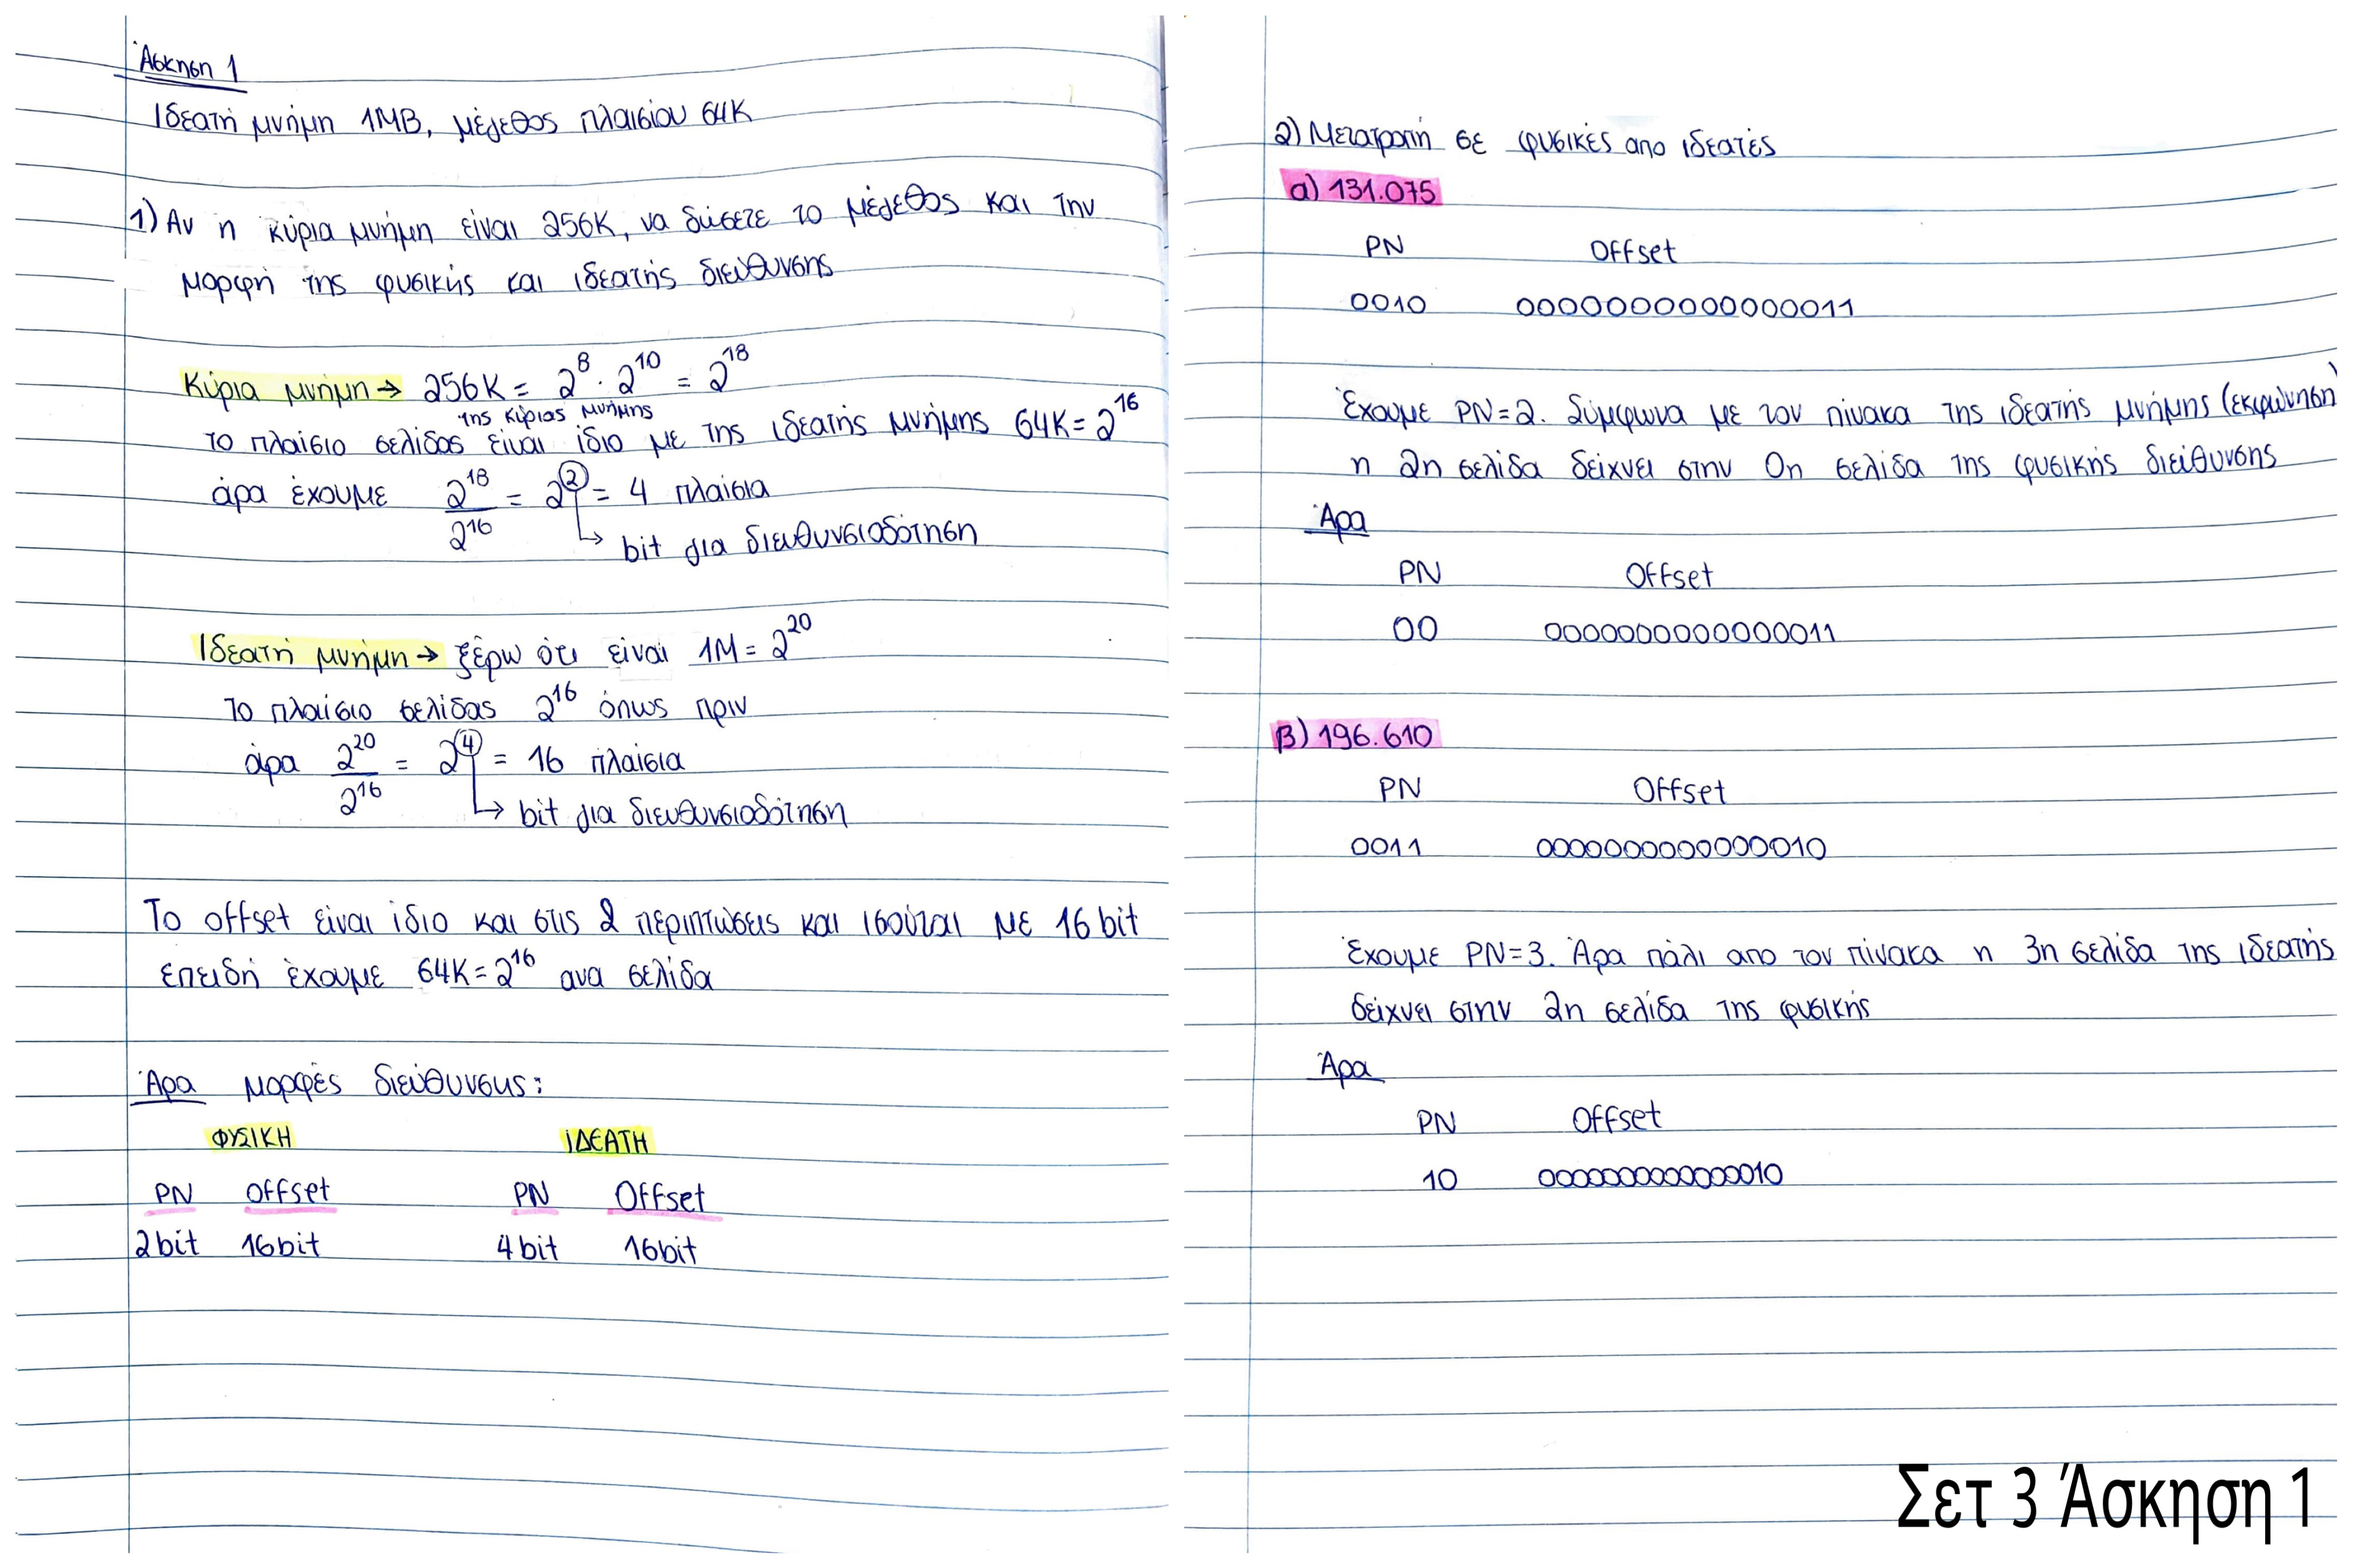 Άσκηση 1
Ιδεατή μνήμη 1MB, μέγεθος πλαισίου 64K
1) Αν η κύρια μνήμη είναι 256K, να δώσετε το μέγεθος και την
μορφή της φυσικής και ιδεατής διεύθυνσης
Κύρια μνήμη → 256K = 2^8 · 2^10 = 2^18
της κύριας μνήμης
το πλαίσιο σελίδας είναι ίδιο με της ιδεατής μνήμης 64K = 2^16
άρα έχουμε 2^18 / 2^16 = 2^2 = 4 πλαίσια
↳ bit για διευθυνσιοδότηση
Ιδεατή μνήμη → ξέρω ότι είναι 1M = 2^20
Το πλαίσιο σελίδας 2^16 όπως πριν
άρα 2^20 / 2^16 = 2^4 = 16 πλαίσια
↳ bit για διευθυνσιοδότηση
Το offset είναι ίδιο και στις 2 περιπτώσεις και ισούται με 16 bit
επειδή έχουμε 64K = 2^16 ανα σελίδα
Άρα μορφές διεύθυνσης:
ΦΥΣΙΚΗ ΙΔΕΑΤΗ
PN offset PN Offset
2bit 16bit 4bit 16bit
2) Μετατροπή σε φυσικές απο ιδεατές
α) 131.075
PN Offset
0010 0000000000000011
Έχουμε PN=2. Σύμφωνα με τον πίνακα της ιδεατής μνήμης (εκφώνηση)
η 2η σελίδα δείχνει στην 0η σελίδα της φυσικής διεύθυνσης
Άρα
PN Offset
00 0000000000000011
β) 196.610
PN Offset
0011 0000000000000010
Έχουμε PN=3. Άρα πάλι απο τον πίνακα η 3η σελίδα της ιδεατής
δείχνει στην 2η σελίδα της φυσικής
Άρα
PN Offset
10 0000000000000010
Σετ 3 Άσκηση 1